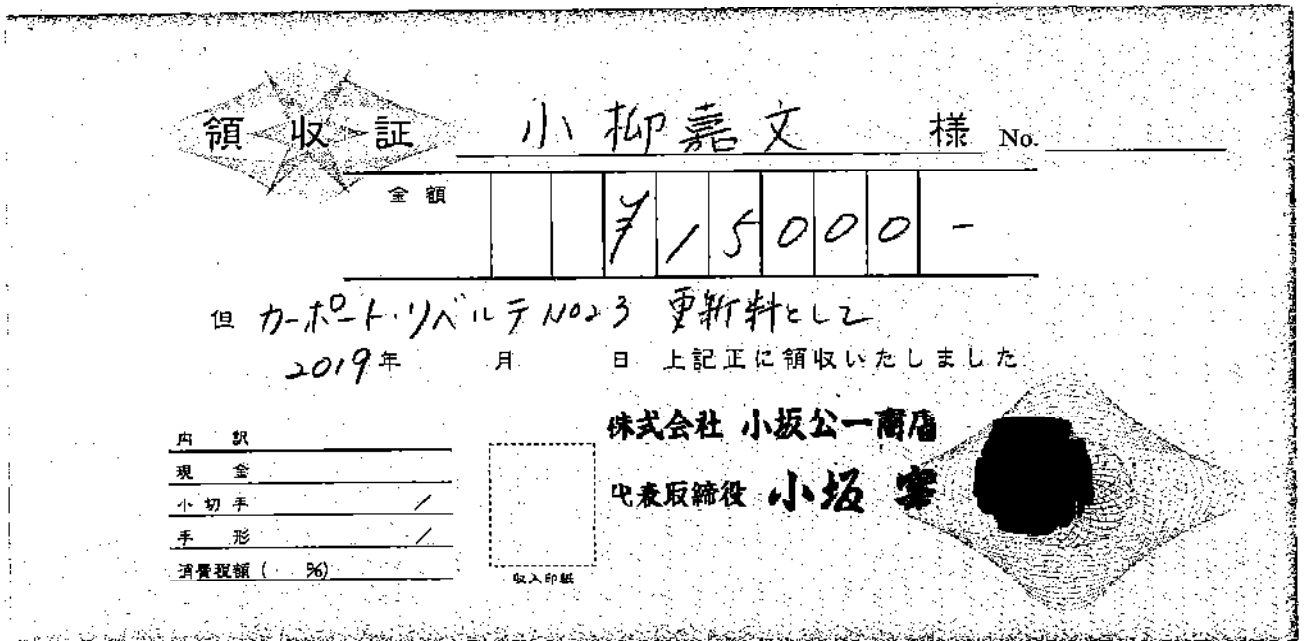 領収証 小柳嘉文 様 No.
金額 ¥15000-
但 カーポート・リベルテNo23 更新料として
2019年 月 日 上記正に領収いたしました
株式会社 小坂公一商店
代表取締役 小坂
内訳
現金
小切手 /
手形 /
消費税額( %)
収入印紙